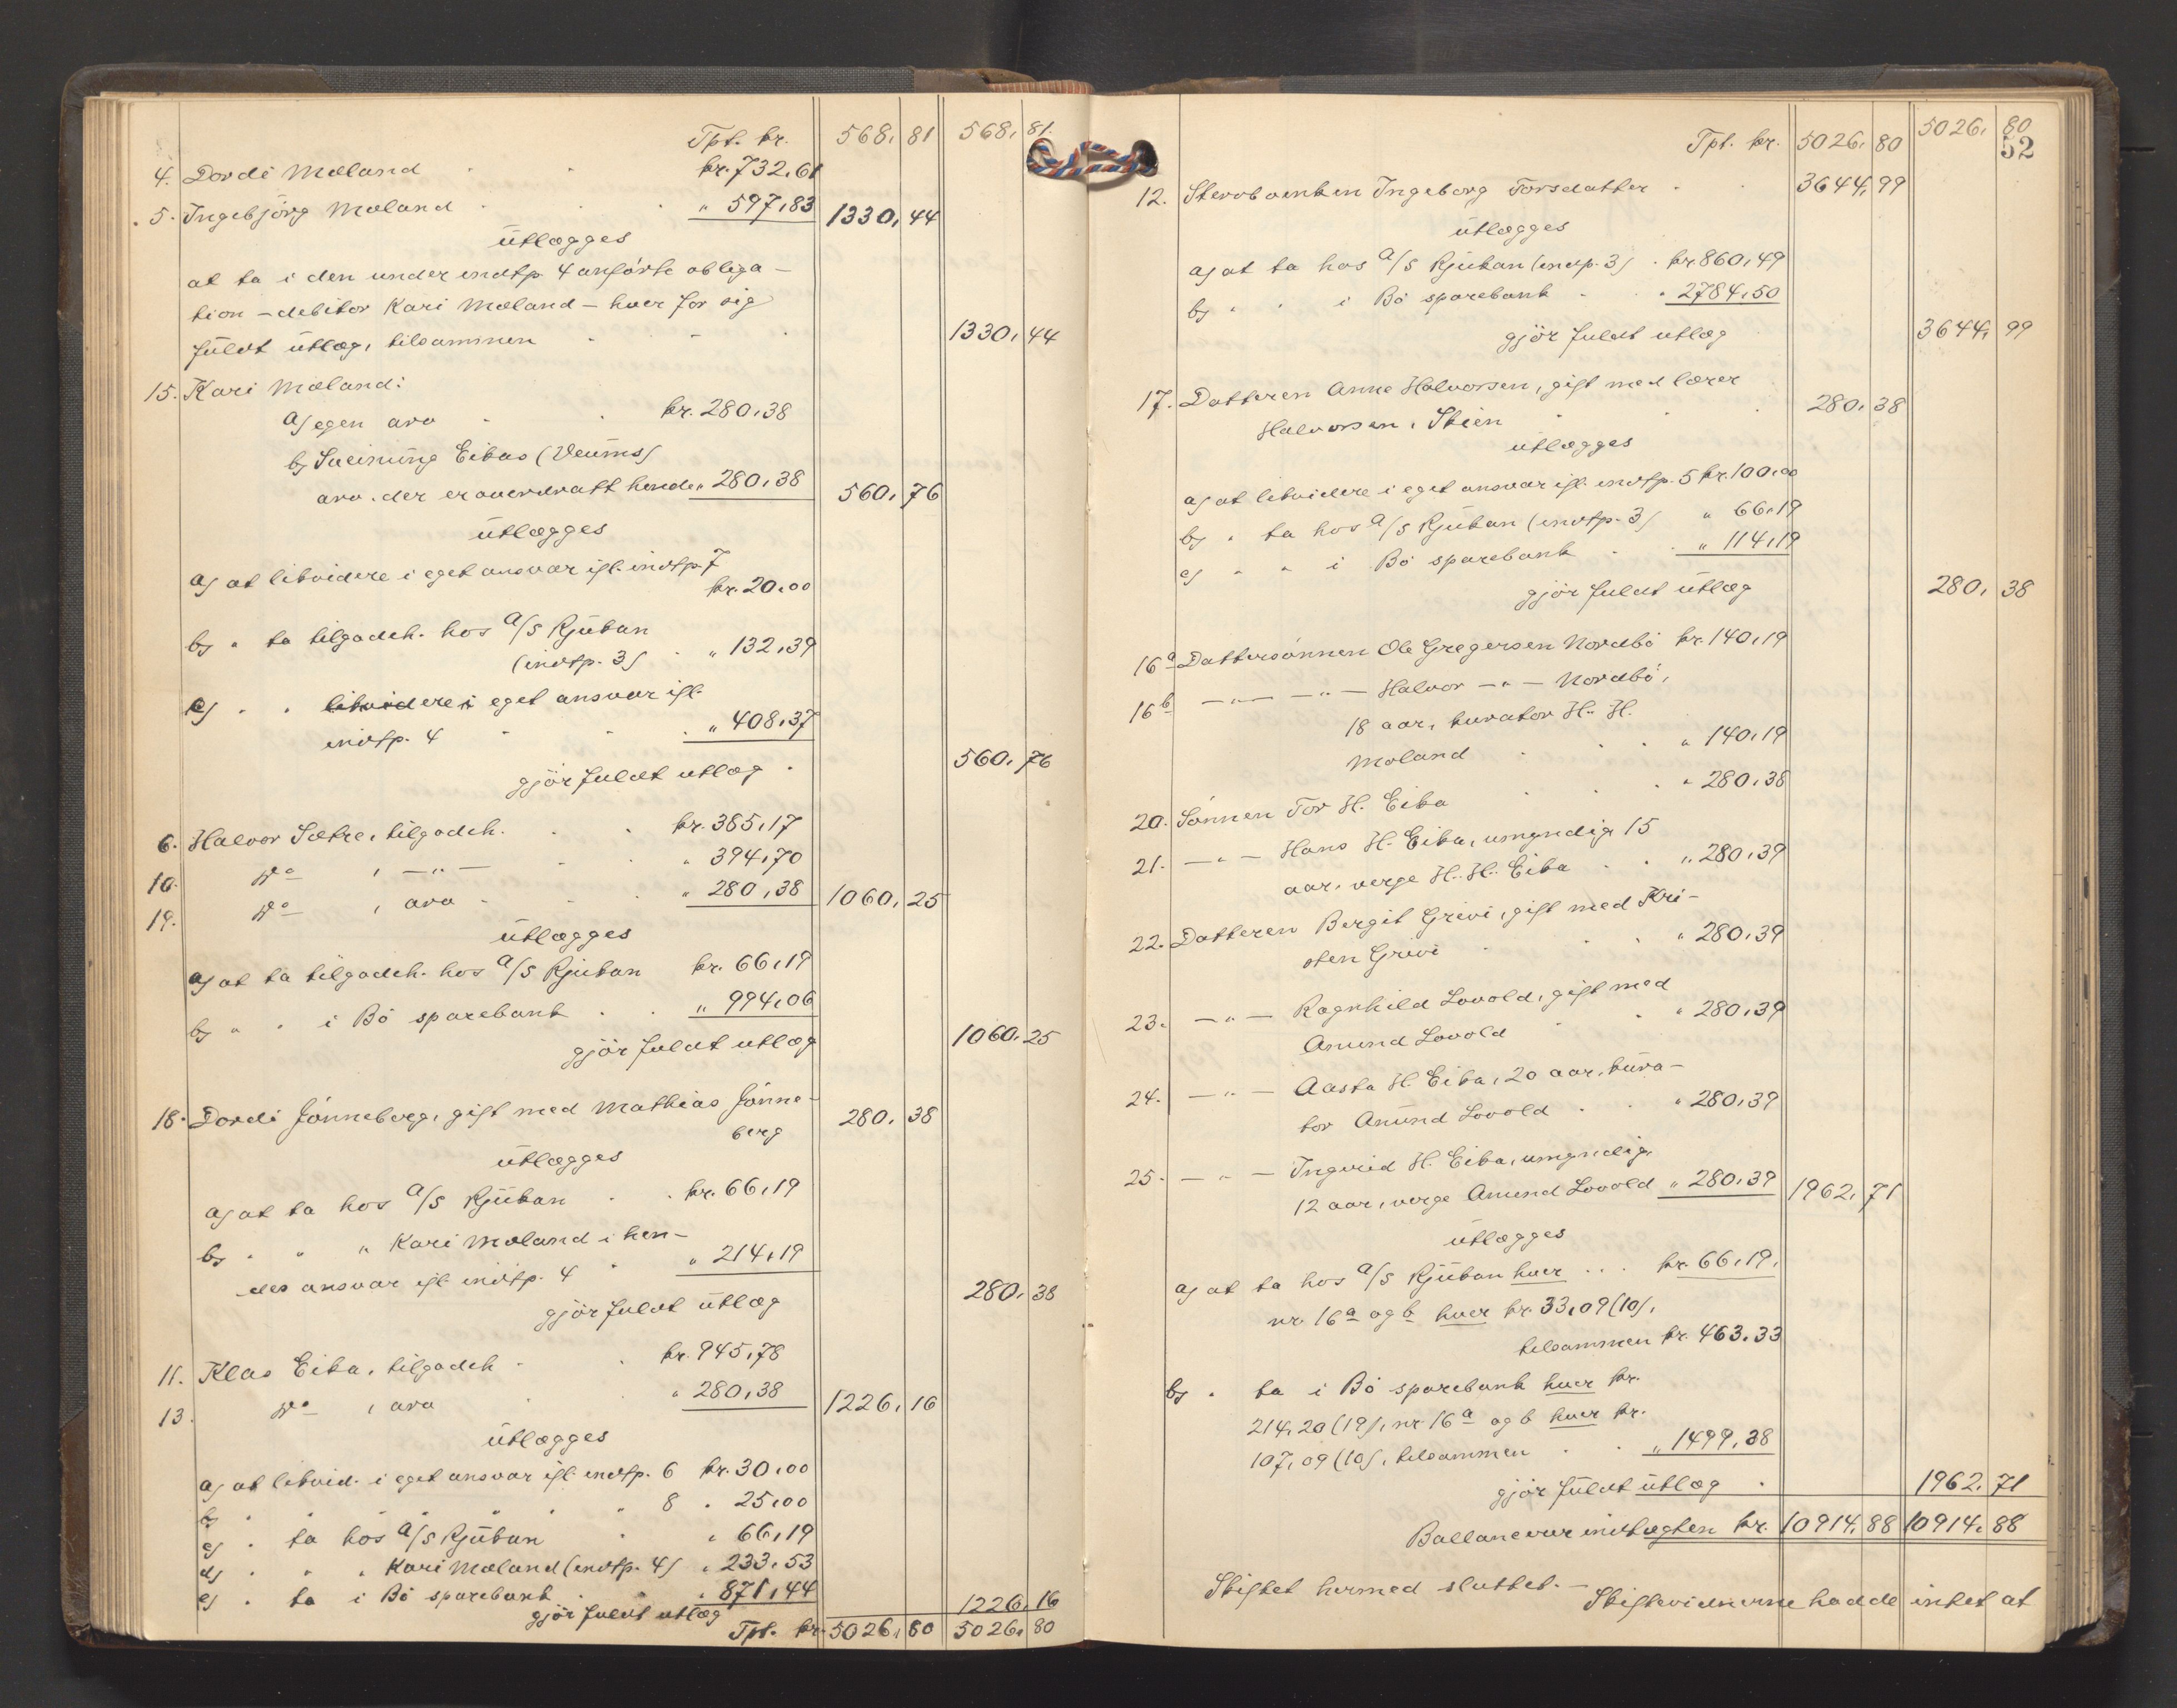 Tpt. kr. 568,81 568,81.
4. Dordi Moland kr. 732,61
5. Ingebjörg Moland " 597,83 1330,44
utlægges
at ta i den under indtp. 4 anförte obliga-
tion - debitor Kari Moland - hver for sig
fuldt utlæg, tilsammen 1330,44
15. Kari Moland:
a) egen arv kr. 280,38
b) Sveinung Eikas (Veums)
arv, der er overdratt hende " 280,38 560,76
utlægges
a) at likvidere i eget ansvar ifl. indtp. 7
kr. 20,00
b) " ta tilgodeh. hos A/S Rjukan
(indtp. 3) " 132,39
c) " " likvidere i eget ansvar ifl.
indtp. 4 " 408,37
gjör fuldt utlæg 560,76
6. Halvor Sætre, tilgodeh. kr. 385,17
10. do , -"- " 394,70
19. do , arv " 280,38 1060,25
utlægges
a) at ta tilgodeh. hos A/S Rjukan kr. 66,19
b) " " i Bö sparebank " 994,06
gjör fuldt utlæg 1060,25
18. Dordi Jönneberg, gift med Mathias Jönne-
berg 280,38
utlægges
a) at ta hos A/S Rjukan kr. 66,19
b) " " " Kari Moland i hen-
des ansvar ifl. indtp. 4 " 214,19
gjör fuldt utlæg 280,38
11. Klas Eika, tilgodeh. kr. 945,78
13. do , arv " 280,38 1226,16
utlægges
a) at likvid. i eget ansvar ifl. indtp. 6 kr. 30,00
b) " " " " " " 8 " 25,00
c) " ta hos A/S Rjukan " 66,19
d) " " " Kari Moland (indtp. 4) " 233,53
e) " ta i Bö sparebank " 871,44
gjör fuldt utlæg 1226,16
Tpt. kr. 5026,80 5026,80
52
Tpt. kr. 5026,80 5026,80
12. Stervboenken Ingeborg Torsdatter 3644,99
utlægges
a) at ta hos A/S Rjukan (indtp. 3) kr. 860,49
b) " " i Bö sparebank " 2784,50
gjör fuldt utlæg 3644,99
17. Datteren Anne Halvorsen, gift med lærer
Halvorsen, Skien 280,38
utlægges
a) at likvidere i eget ansvar ifl. indtp. 5 kr. 100,00
b) " ta hos A/S Rjukan (indtp. 3) " 66,19
c) " " i Bö sparebank " 114,19
gjör fuldt utlæg 280,38
16a Dattersönnen Ole Gregersen Nordbö kr. 140,19
16b -"- -"- Halvor -"- Nordbö,
18 aar, kurator H. H.
Moland " 140,19
20. Sönnen Tor H. Eika " 280,38
21. -"- Hans H. Eika, umyndig 15
aar, verge H. H. Eika " 280,39
22. Datteren Bergit Grivi, gift med Kri-
sten Grivi " 280,39
23. -"- Ragnhild Lovold, gift med
Anund Lovold " 280,39
24. -"- Aasta H. Eika, 20 aar, kura-
tor Anund Lovold " 280,39
25. -"- Ingerid H. Eika, umyndig,
12 aar, verge Anund Lovold " 280,39 1962,71
utlægges
a) at ta hos A/S Rjukan hver kr. 66,19,
nr. 16a og b hver kr. 33,09 (10),
tilsammen kr. 463,33
b) " ta i Bö sparebank hver kr.
214,20 (19), nr. 16a og b hver kr.
107,09 (10), tilsammen " 1499,38
gjör fuldt utlæg 1962,71
Ballancerer indtægten kr. 10914,88 10914,88
Skiftet hermed sluttet. -
Skiftevidnerne hadde intet at